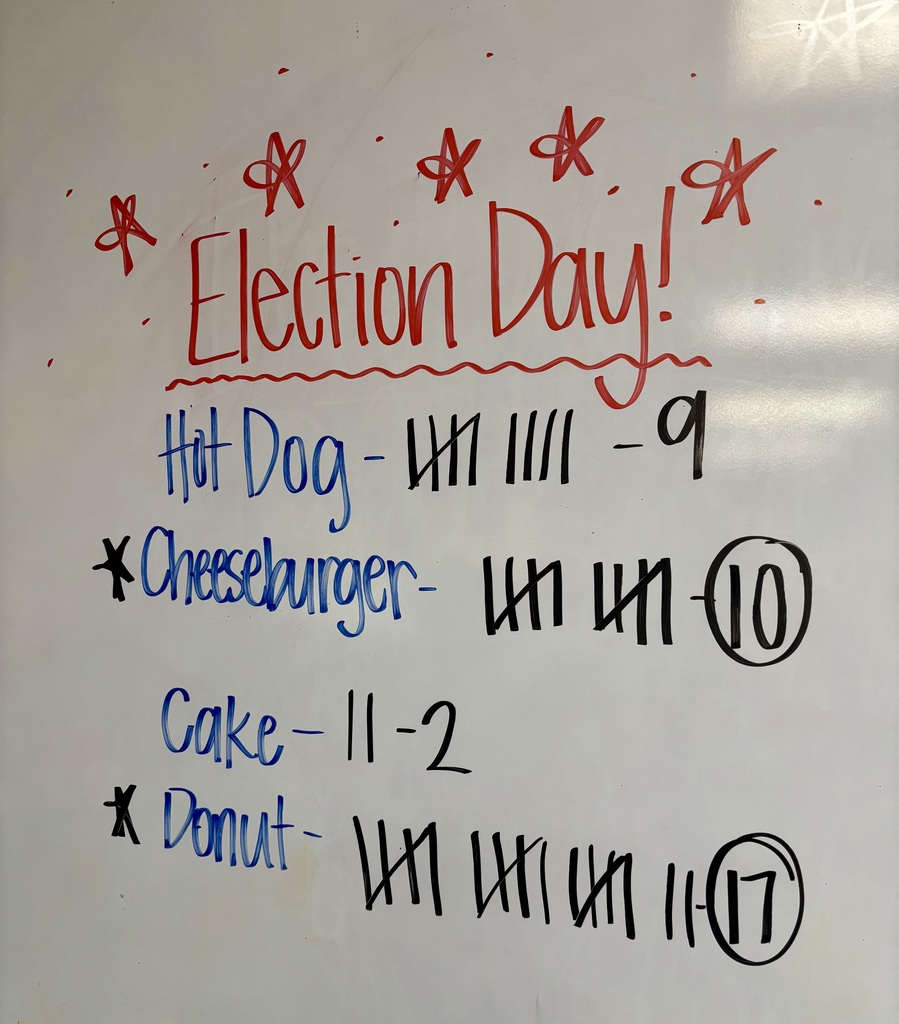 Election Day!
Hot Dog - 9
Cheeseburger - 10
Cake - 2
Donut - 17